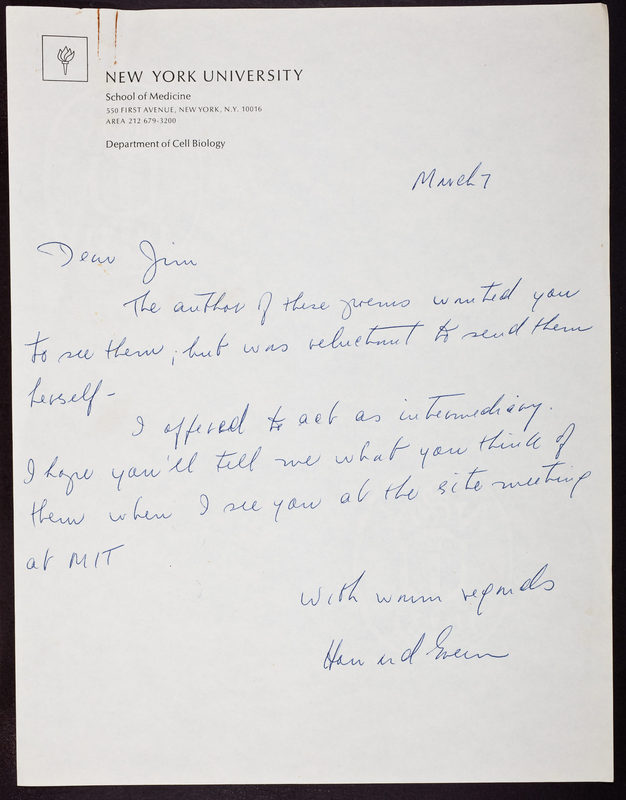 NEW YORK UNIVERSITY
School of Medicine
550 FIRST AVENUE, NEW YORK, N.Y. 10016
AREA 212 679-3200
Department of Cell Biology
March 7
Dear Jim
The author of these poems wanted you
to see them, but was reluctant to send them
herself-
I offered to act as intermediary.
I hope you'll tell me what you think of
them when I see you at the site meeting
at MIT
With warm regards
Howard Green